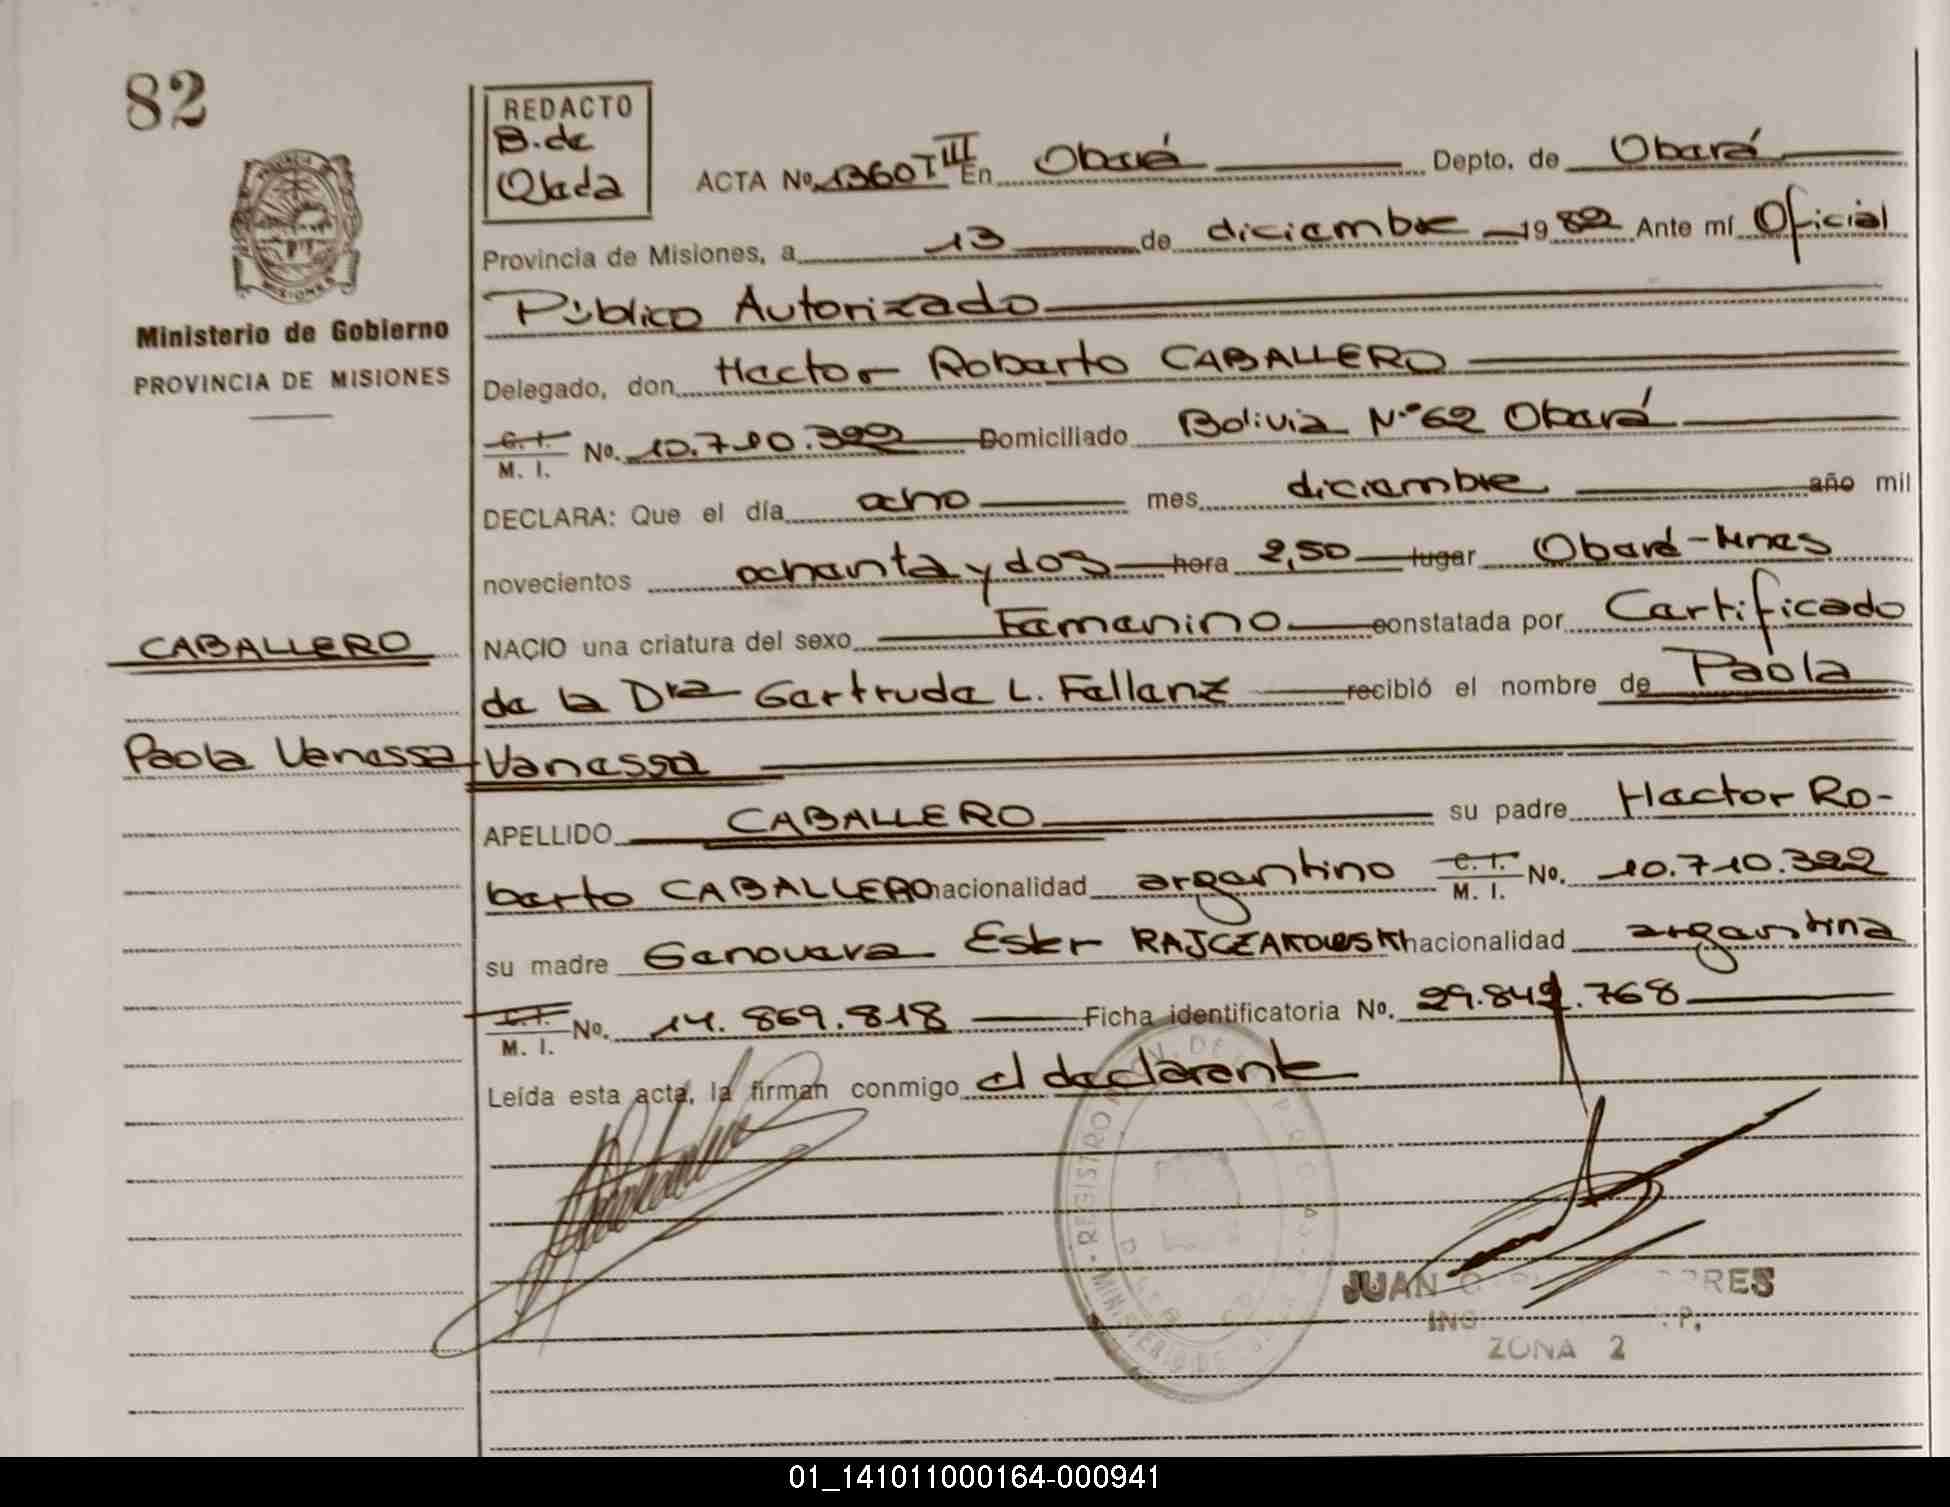 82
REDACTO
B. de
Ojeda
ACTA No. 1360 T III En Oberá Depto. de Oberá
Provincia de Misiones, a 13 de diciembre 1982 Ante mí Oficial
Público Autorizado
Ministerio de Gobierno
PROVINCIA DE MISIONES
Delegado, don Hector Roberto CABALLERO
C. I. M. I. No. 10.710.322 Domiciliado Bolivia N.º 62 Oberá
DECLARA: Que el día ocho mes diciembre año mil
novecientos ochenta y dos hora 2,50 lugar Oberá - Mnes
CABALLERO
NACIO una criatura del sexo Femenino constatada por Certificado
de la Dra Gertruda L. Fallenz recibió el nombre de Paola
Paola Vanessa
Vanessa
APELLIDO CABALLERO su padre Hector Ro-
berto CABALLERO nacionalidad argentino C. I. M. I. No. 10.710.322
su madre Genoveva Ester RAJCZAKOWSKI nacionalidad argentina
C. I. M. I. No. 14.869.818 Ficha identificatoria No. 29.842.768
Leída esta acta, la firman conmigo el declarante
REGISTRO
JUAN
ZONA 2
01_141011000164-000941